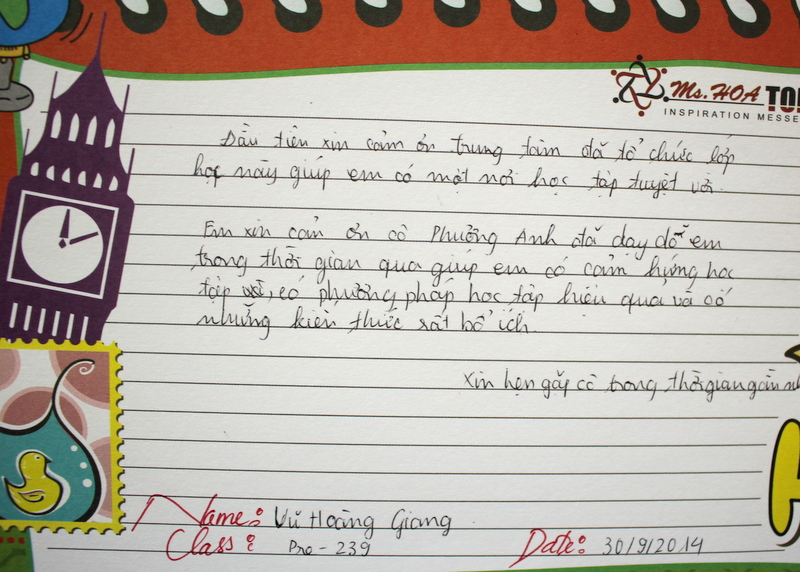 Ms. HOA TOE
INSPIRATION MESSE
Đầu tiên xin cảm ơn trung tâm đã tổ chức lớp
học này giúp em có một nơi học tập tuyệt vời.
Em xin cảm ơn cô Phương Anh đã dạy dỗ em
trong thời gian qua giúp em có cảm hứng học
tập, có phương pháp học tập hiệu quả và có
những kiến thức rất bổ ích.
Xin hẹn gặp cô trong thời gian gần
Name: Vũ Hoàng Giang
Class: Pre - 239
Date: 30/9/2014